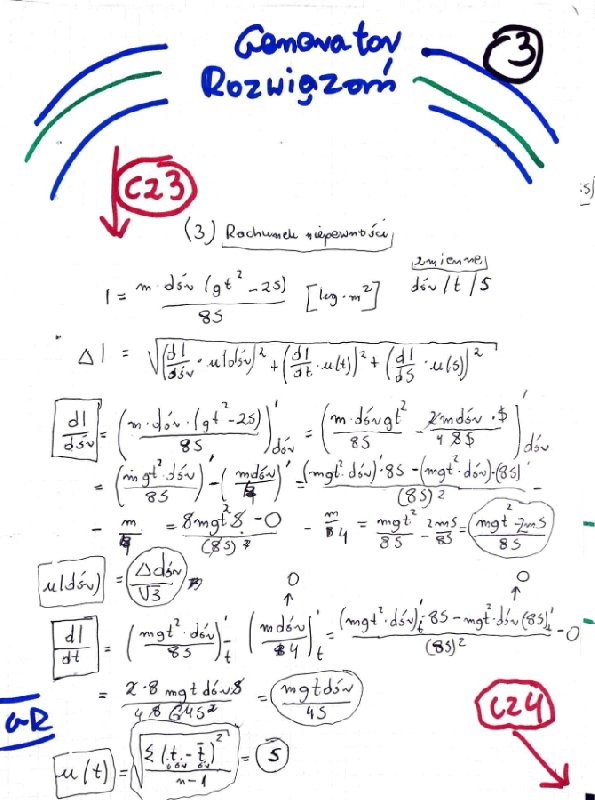 Generator
Rozwiązań
C3
cz3
(3) Rachunek niepewności
zmienne
I = m·dśr (gt² - 2S) / 8S [kg·m²] dśr / t / S
ΔI = √((dI/dśr · u(dśr))² + (dI/dt · u(t))² + (dI/dS · u(S))²)
dI/dśr = (m·dśr·(gt²-2S) / 8S)'dśr = (m·dśr gt² / 8S - 2mdśr·S / 4 8S)'dśr
= (mgt²·dśr / 8S)' - (mdśr / 4)' = (mgt²·dśr)'·8S - (mgt²·dśr)·(8S)' / (8S)² -
- m/4 = 8mgt²S - 0 / (8S)² - m/4 = mgt²/8S - 2mS/8S = mgt² - 2mS / 8S
u(dśr) = Δdśr / √3
0 0
dI/dt = (mgt²·dśr / 8S)'t - (mdśr / 4)'t = (mgt²·dśr)'t·8S - mgt²·dśr(8S)'t / (8S)² - 0
= 2·8 mgtdśrS / 4 8 64S² = mgtdśr / 4S
GR
cz4
u(t) = √(Σ(tśr - t̄śr)² / n-1) = S